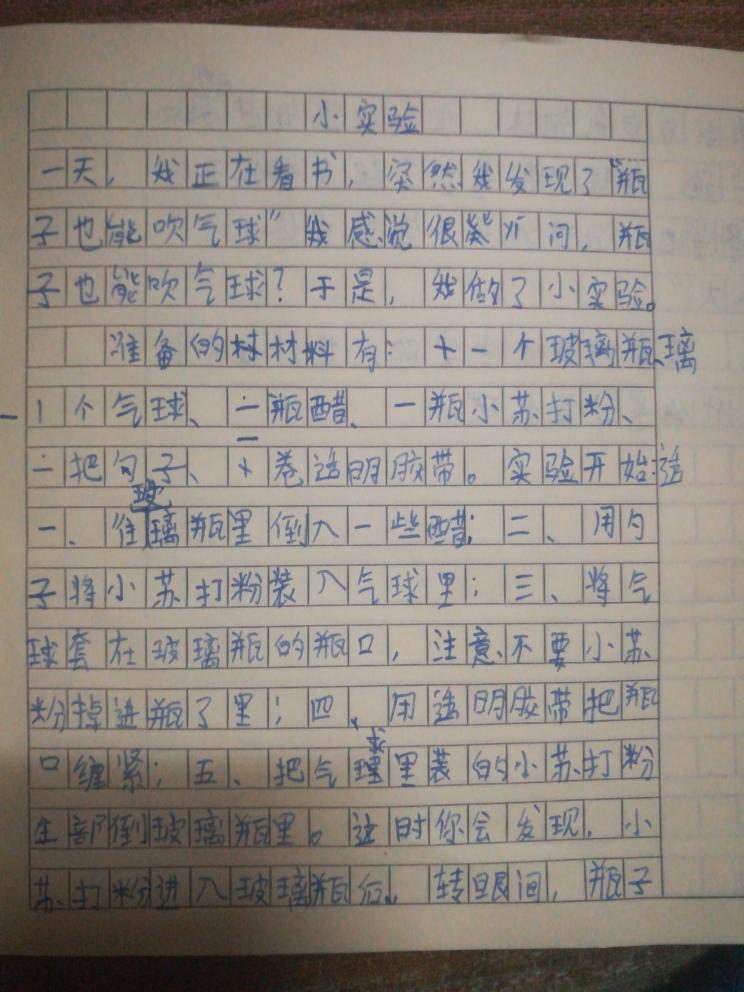 小实验
一天，我正在看书，突然我发现了“瓶
子也能吹气球”我感说很 问，瓶
子也能吹气球？于是，我做了小实验。
准备的材材料有：一个玻璃瓶、璃
一1个气球、二瓶醋、一瓶小苏打粉、
二把勺子、卷透明胶带。实验开始：透
一、往玻璃瓶里倒入一些醋；二、用勺
子将小苏打粉装入气球里；三、将气
球套在玻璃瓶的瓶口，注意不要小苏
粉掉进瓶了里；四、用透明胶带把瓶
口缠紧；五、把气球里装的小苏打粉
全部倒玻璃瓶里。这时你会发现，小
苏打粉进入玻璃瓶后，转眼间，瓶子